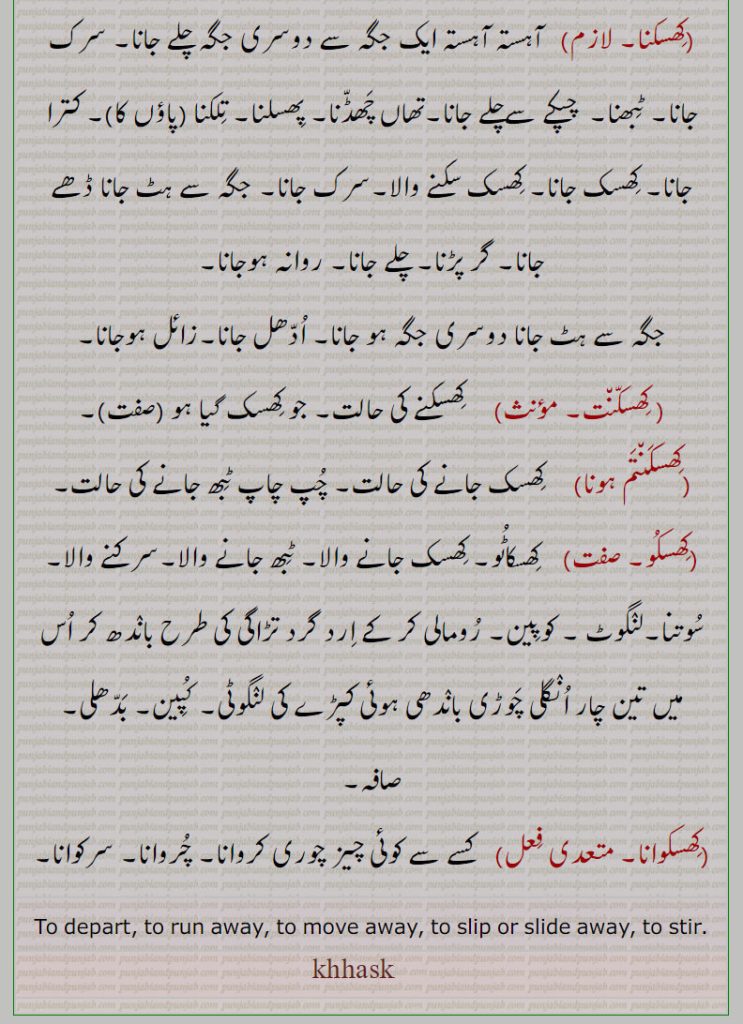 (کِھسکنا۔ لازم) آہستہ آہستہ ایک جگہ سے دوسری جگہ چلے جانا۔ سرک
جانا۔ ٹِبھنا۔ چپکے سے چلے جانا۔تھاں چَھڈّنا۔ پِھسلنا۔ تِلکنا (پاؤں کا)۔ کترا
جانا۔ کِھسک جانا۔ کِھسک سکنے والا۔سرک جانا۔ جگہ سے ہٹ جانا ڈھے
جانا۔ گر پڑنا۔ چلے جانا۔ روانہ ہوجانا۔
جگہ سے ہٹ جانا دوسری جگہ ہو جانا۔ اُدّھل جانا۔زائل ہوجانا۔
( کِھسکَنّت۔ مؤنث) کِھسکنے کی حالت۔ جو کِھسک گیا ہو (صفت)۔
(کِھسکَنّتَم ہونا) کِھسک جانے کی حالت۔ چُپ چاپ ٹِبھ جانے کی حالت۔
(کِھسکُو۔ صفت) کِھسکاٹُو۔ کِھسک جانے والا۔ ٹِبھ جانے والا۔سرکنے والا۔
سُوتنا۔لن٘گوٹ ۔ کوپین۔ رُومالی کر کے اِرد گرد تڑاگی کی طرح بان٘دھ کر اُس
میں تین چار اُن٘گلی چَوڑی بان٘دھی ہوئی کپڑے کی لن٘گوٹی۔ کُپین۔ بَدّھلی۔
صافہ۔
(کِھسکوانا۔ متعدی فِعل) کسے سے کوئی چیز چوری کروانا۔ چُروانا۔ سرکوانا۔
To depart, to run away, to move away, to slip or slide away, to stir.
khhask